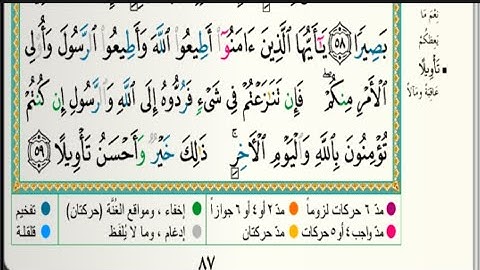 بَصِيرًا ٥٨ يَـٰٓأَيُّهَا ٱلَّذِينَ ءَامَنُوٓا۟ أَطِيعُوا۟ ٱللَّهَ وَأَطِيعُوا۟ ٱلرَّسُولَ وَأُو۟لِى
ٱلْأَمْرِ مِنكُمْ ۖ فَإِن تَنَـٰزَعْتُمْ فِى شَىْءٍ فَرُدُّوهُ إِلَى ٱللَّهِ وَٱلرَّسُولِ إِن كُنتُمْ
تُؤْمِنُونَ بِٱللَّهِ وَٱلْيَوْمِ ٱلْـَٔاخِرِ ۚ ذَٰلِكَ خَيْرٌ وَأَحْسَنُ تَأْوِيلًا ٥٩
نِعْمَ مَا
يَعِظُكُمْ
تَأْوِيلًا
عَاقِبَةً وَمَآلًا
مدّ ٦ حركات لزوماً
مدّ ٢ أو ٤ أو ٦ جوازاً
إخفاء ، ومواقع الغُنَّة (حركتان)
تفخيم
مدّ واجب ٤ أو ٥ حركات
مدّ حركتان
إدغام ، وما لا يُلفَظ
قلقلة
٨٧